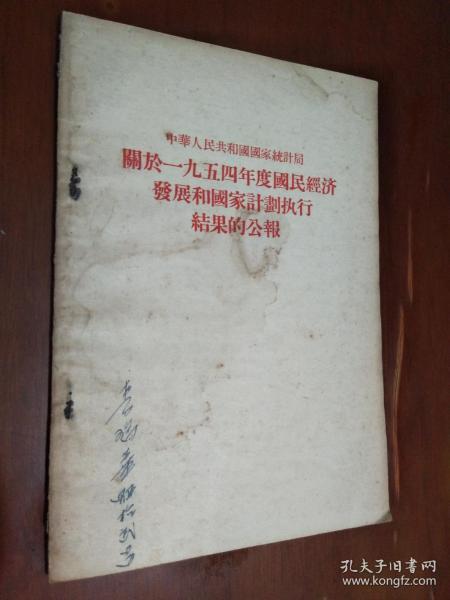 中華人民共和國國家統計局
關於一九五四年度國民經济
發展和國家計劃执行
結果的公報
孔夫子旧书网
www.kongfz.com